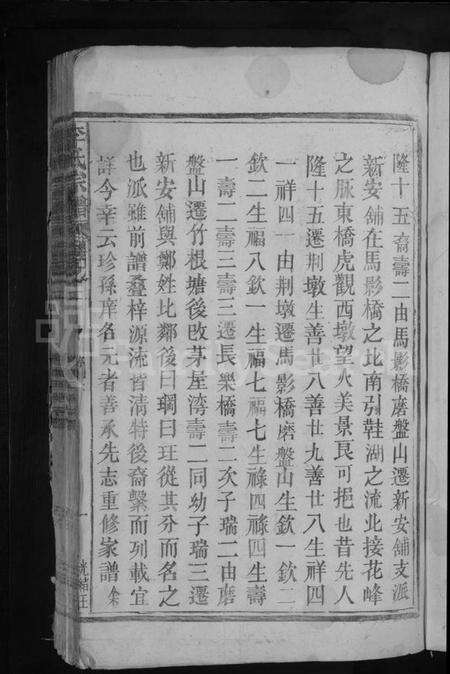 隆十五裔壽二由馬影橋磨盤山遷新安舖支派
新安舖在馬影橋之北南引鞋湖之流北接花峰
之脉東橋虎觀西墩望火美景良可挹也昔先人
隆十五遷荆墩生善廿八善廿九善廿八生祥四
一祥四一由荆墩遷馬影橋磨盤山生欽一欽二
欽二生福八欽一生福七福七生祿四祿四生壽
一壽二壽三壽三遷長樂橋壽二次子瑞二由磨
盤山遷竹根塘後改茅屋湾壽二同幼子瑞三遷
新安舖與鄭姓比鄰後曰瑚曰玨從其分而名之
也派雖前譜叠梓源流皆清特後裔繫而列載宜
詳今幸云珍孫庠名元者善承先志重修家譜余